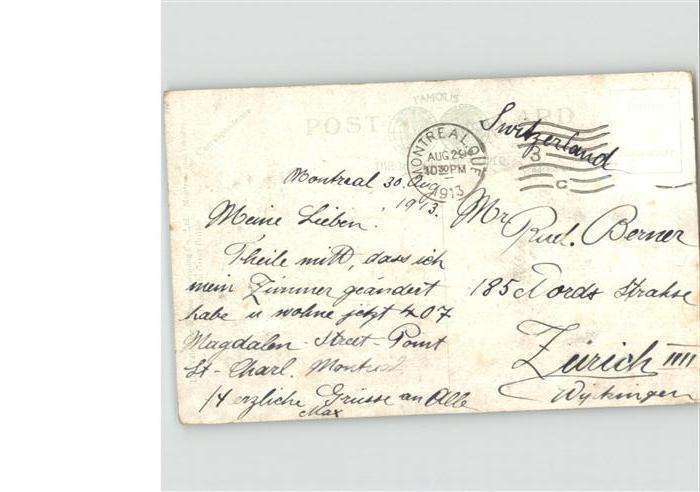 FAMOUS
POST CARD
MONTREAL, QUE.
AUG 29
10 30 PM
1913
3
C
Switzerland
Montreal 30. Aug
1913.
Meine Lieben!
Theile mitt, dass ich
mein Zimmer geändert
habe u wohne jetzt 407
Magdalen - Street - Point
St - Charl. Montreal
Herzliche Grüsse an Alle
Max
Mr Rud. Berner
185 Strahse
Zürich IIII